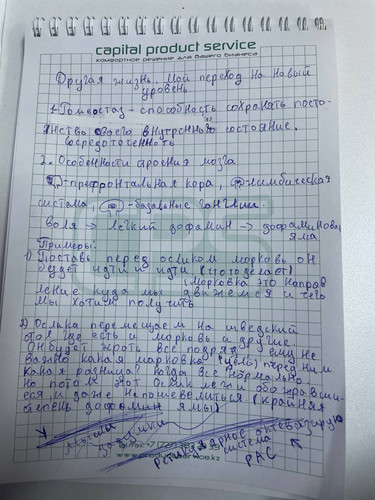 capital product service
комфортное решение для вашего бизнеса
Другая жизнь. Мой переход на новый
уровень.
1. Гомеостаз - способность сохранять посто-
янство своего внутреннего состояние.
Сосредоточенность
2. Особенности строения мозга
- префронтальная кора, - лимбическая
система, - базальные ганглии.
воля → легкий дофамин → дофаминовая
яма
Примеры:
1) Поставь перед осликом морковь он
будет идти и идти (что делает)
(морковка это направ
ление куда мы движемся и чего
мы хотим получить
2) Ослика перемещаем на шведский
стол где есть и морковь и другие.
Он будет жрать все подряд, ему не
важно какая морковка (цель) перед ним
Какая разница? когда все нормально
но потом этот ослик лег и обожравши-
ся и даже не пошевелиться (крайняя
степень дофамин ямы)
Ретикулярное активизирую
система
РАС
www.productservice.kz